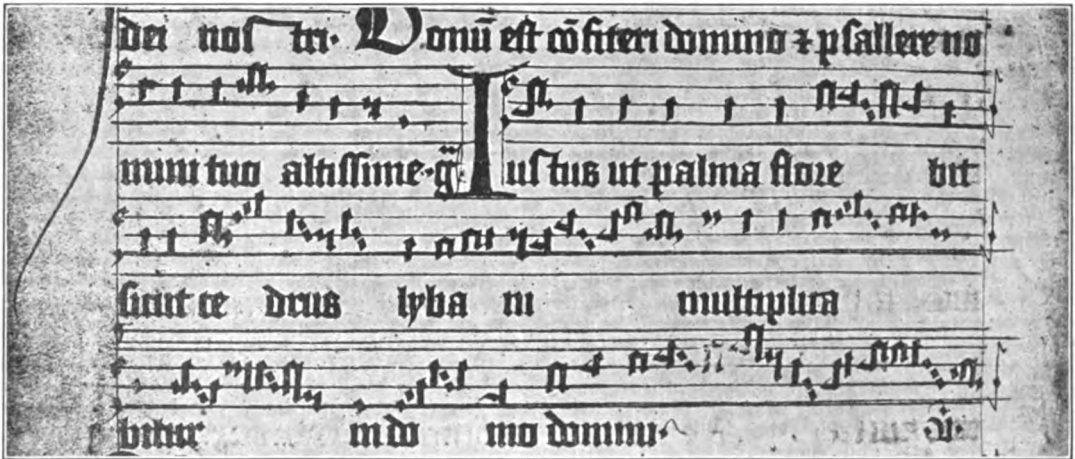 dei nostri. Bonū est cōfiteri domino ⁊ psallere no
mini tuo altissime. Iustus ut palma flore bit
sicut ce drus lyba ni multiplica
bitur in do mo domini.